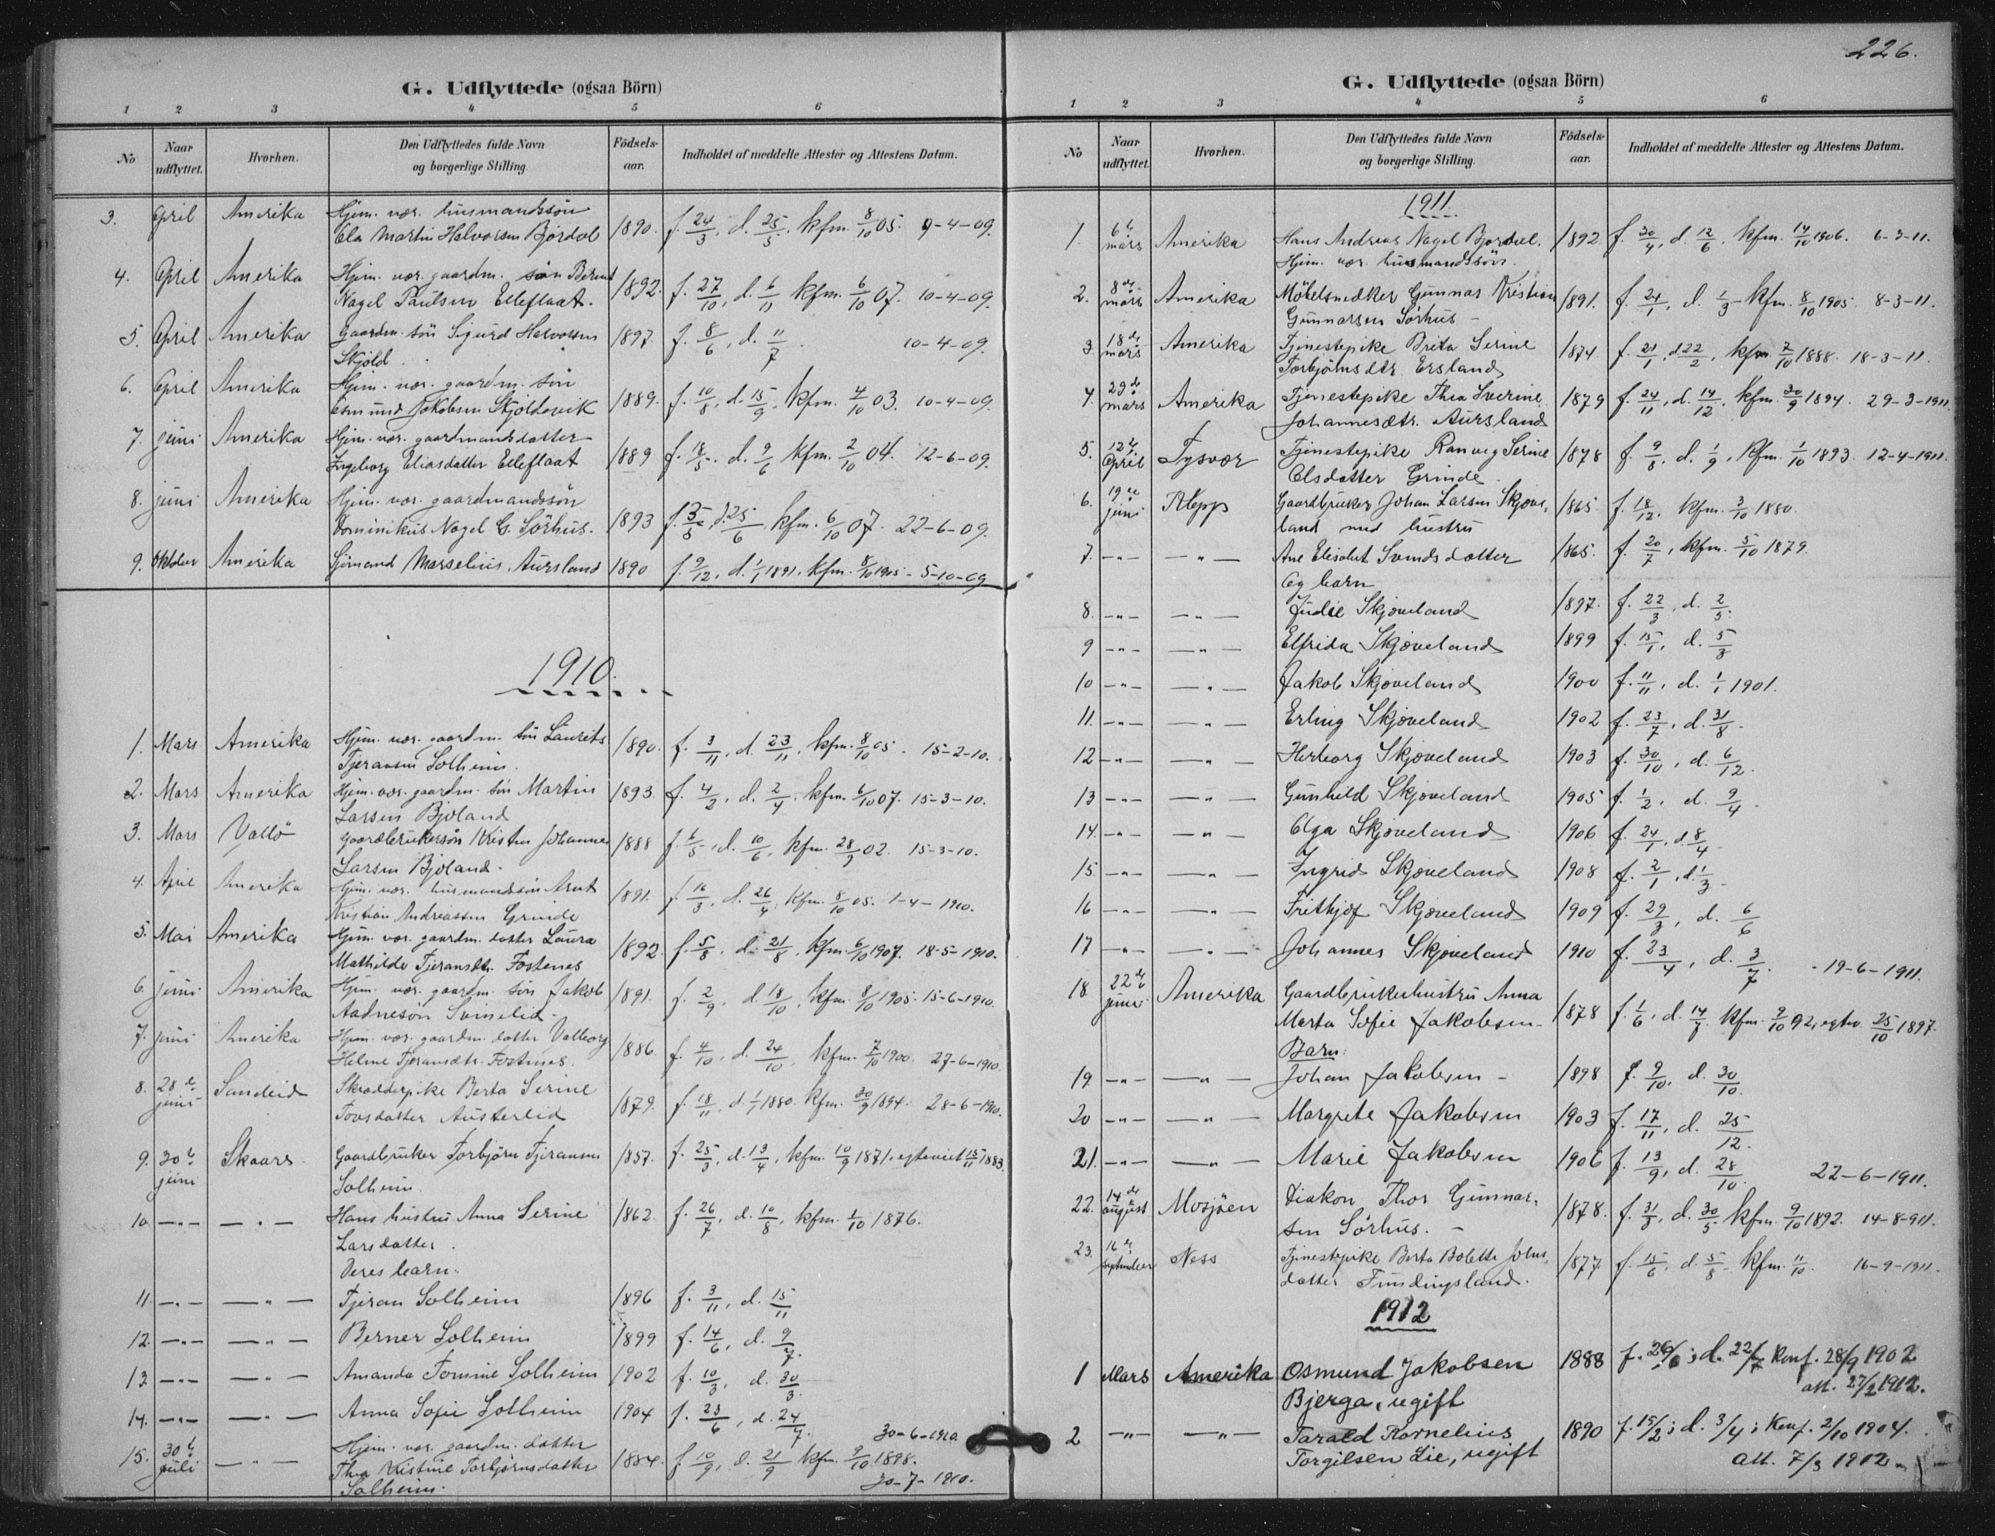 G. Udflyttede (ogsaa Börn)
1 2 3 4 5 6
No
Naar udflyttet.
Hvorhen.
Den Udflyttedes fulde Navn
og borgerlige Stilling.
Födsels-aar.
Indholdet af meddelte Attester og Attestens Datum.
3. April Amerika Hjem. vær. husmandssøn
Ola Martin Halvorsen 1890. f. 24/3, d. 25/5. kfm. 8/10 05. 9-4-09.
4. April Amerika Hjem. vær. gaardm. søn Bernt
Nagel Paulsen Elleflaat. 1892. f. 27/10, d. 6/11 kfm. 6/10 07. 10-4-09.
5. April Amerika Gaardm. søn Sigurd Halvorsen
Skjold 1897. f. 8/6, d. 11/7. 10-4-09.
6. April Amerika Hjem. vær. gaardm. søn
Osmund Jakobsen Skjoldevik 1889. f. 10/8, d. 15/9. kfm. 4/10 03. 10-4-09.
7. juni Amerika Hjem. vær. gaardmandsdatter
Ingeborg Eliasdatter Elleflaat 1889 f. 18/5. d. 9/6 kfm. 2/10 04. 12-6-09.
8. juni Amerika Hjem. vær. gaardmandssøn
Dominikus Nagel G. Sørhus. 1893 d. 25/6, kfm. 6/10 07. 22-6-09.
9. Oktober Amerika Sjømand Marselius Aursland 1890 f. 9/12, d. 1/1 1891. kfm. 8/10 1905 - 5-10-09
1910.
1. Mars Amerika Hjem. vær. gaardm. søn Laurits
Tjeransen Solheim. 1890. f. 3/11, d. 23/11, kfm. 8/10 05. 15-2-10.
2. Mars Amerika Hjem. vær. gaardm. søn Martin
Larsen Bjoland 1893. f. 4/2, d. 2/4. kfm. 6/10 07. 15-3-10.
3. Mars Vallö Gaardbrukersøn Kristen Johannes
Larsen Bjoland. 1888 d. 10/6, kfm. 28/9 02. 15-3-10.
4. April Amerika Hjem. vær. husmandssøn Arnt
Kristian Andreassen Grinde 1891. f. 16/3, d. 26/4, kfm. 8/10 05. 1-4-1910.
5. Mai Amerika Hjem. vær. gaardm. datter Laura
Mathilde Tjeransdtr. Fostenes 1892. f. 5/8. d. 21/8, kfm. 6/10 1907. 18-5-1910.
6. juni Amerika Hjem. vær. gaardm. søn Jakob
Aadneson 1891. f. 2/9, d. 18/10, kfm. 8/10 1905. 15-6-1910.
7. juni Amerika Hjem. vær. gaardm. datter Valborg
Helme Tjeransdtr. Fostenes. 1886. f. 4/10, d. 24/10, kfm. 7/10 1900. 27-6-1910.
8. 28e juni Sandeid Skrædderpike Berta Serine
Tovsdatter Austerlid 1879. f. 18/11, d. 1/1 1880. kfm. 30/9 1894. 28-6-1910.
9. 30te juni Skaare. Gaardbruker Torbjörn Tjeransen
Solheim. 1857. f. 25/3, d. 13/4, kfm. 10/9 1871, egteviet 15/11 1883
10. -"- -"- Hans hustru Anna Serine
Larsdatter. 1862. f. 26/7, d. 10/8, kfm. 1/10 1876.
Deres barn.
11. -"- -"- Tjeran Solheim 1896 f. 3/11, d. 15/11
12. -"- -"- Berner Solheim 1899 f. 14/6, d. 9/7.
13. -"- -"- Amanda Tomine Solheim 1902 f. 10/3, d. 30/3.
14. -"- -"- Anna Sofie Solheim 1904 f. 23/6, d. 24/7. 30-6-1910
15. 30te juli -"- Hjem. vær. gaardm. datter
Thea Kristine Torbjørnsdatter
Solheim. 1884. f. 10/9, d. 21/9 kfm. 9/10 1898.
30-7-1910.
226.
G. Udflyttede (ogsaa Börn)
1 2 3 4 5 6
No
Naar udflyttet.
Hvorhen.
Den Udflyttedes fulde Navn
og borgerlige Stilling.
Födsels-aar.
Indholdet af meddelte Attester og Attestens Datum.
1911.
1. 6te mars Amerika Hans Andreas Nagel
Hjem. vær. husmandssøn. 1892 f. 20/4, d. 12/6, kfm. 14/10 1906. 6-3-11.
2. 8de mars Amerika Møbelsnedker Gunnar Kristian
Gunnarsen Sørhus - 1891. f. 24/1, d. 1/3 - kfm. 8/10 1905. 8-3-11.
3. 18de mars Amerika Tjenestepike Brita Serine
Torbjørnsdtr. Ersland 1874 f. 21/1, d. 22/2, kfm. 7/10 1888. 18-3-11.
4. 29de mars Amerika Tjenestepike Thea Sverine
Johannesdtr. Aursland 1879 f. 24/11, d. 14/12, kfm. 30/9 1894. 29-3-1911
5. 12te April Tysvær Tjenestepike Ranveg Serine
Olsdatter Grinde. 1878 f. 9/8, d. 1/9, kfm. 1/10 1893. 12-4-1911.
6. 19de juni Klepp Gaardbruker Johan Larsen Skjæve-
land med hustru 1865. f. 18/12, kfm. 3/10 1880.
7. -"- -"- Ane Elisabet Svendsdatter 1865. f. 20/7, kfm. 5/10 1879.
Og barn
8. -"- -"- Judie Skjæveland 1897. f. 22/3, d. 2/5.
9 -"- -"- Elfrida Skjæveland 1899 f. 15/1, d. 5/3
10 -"- -"- Jakob Skjæveland 1900 f. 11/11, d. 1/1 1901.
11. -"- -"- Erling Skjæveland 1902 f. 23/7, d. 31/8.
12 -"- -"- Herborg Skjæveland 1903 f. 30/10, d. 6/12.
13 -"- -"- Gunhild Skjæveland 1905 f. 1/2, d. 9/4.
14. -"- -"- Olga Skjæveland 1906 f. 24/1, d. 8/4.
15. -"- -"- Ingrid Skjæveland 1908 f. 2/1, d. 1/3.
16 -"- -"- Fritkjof Skjæveland 1909 f. 29/3, d. 6/6
17 -"- -"- Johannes Skjæveland 1910 f. 23/4, d. 3/7. - 19-6-1911.
18. 22de juni Amerika Gaardbrukerhustru Anna
Marta Sofie Jakobsen - 1878 f. 1/6, d. 14/7 kfm. 9/10 92, egtev. 25/10 1897.
Barn:
19. -"- -"- Johan Jakobsen - 1898 f. 9/10, d. 30/10.
20 -"- -"- Margrete Jakobsen 1903 f. 17/11, d. 25/12.
21. -"- -"- Marie Jakobsen 1906 f. 13/9, d. 28/10. 22-6-1911.
22. 14de august Mosjøen Diakon Thor Gunnar-
sen Sørhus. - 1878. f. 31/3, d. 30/5 kfm. 9/10 1892. 14-8-911.
23. 16de September Ness Tjenestepike Berta Bolette Johns-
datter Fundingsland. 1877 f. 15/6, d. 5/8. kfm. 11/10. 16-9-1911.
1912
1 Mars Amerika Osmund Jakobsen
Bjerga, ugift 1888 f. 26/6; d. 22/7 Konf. 28/9 1902
att. 27/2 1912.
2 -"- -"- Tarald Kornelius
Torgilsen Lie, ugift 1890 f. 15/2; d. 3/4; Konf. 2/10 1904.
att. 7/3 1912.